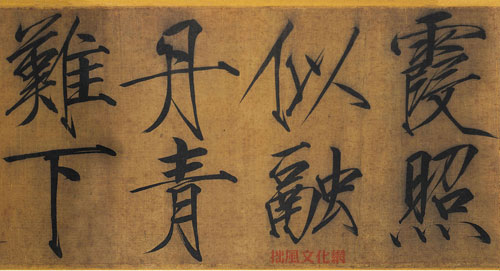 霞照
似融
丹青
難下
拙風文化網